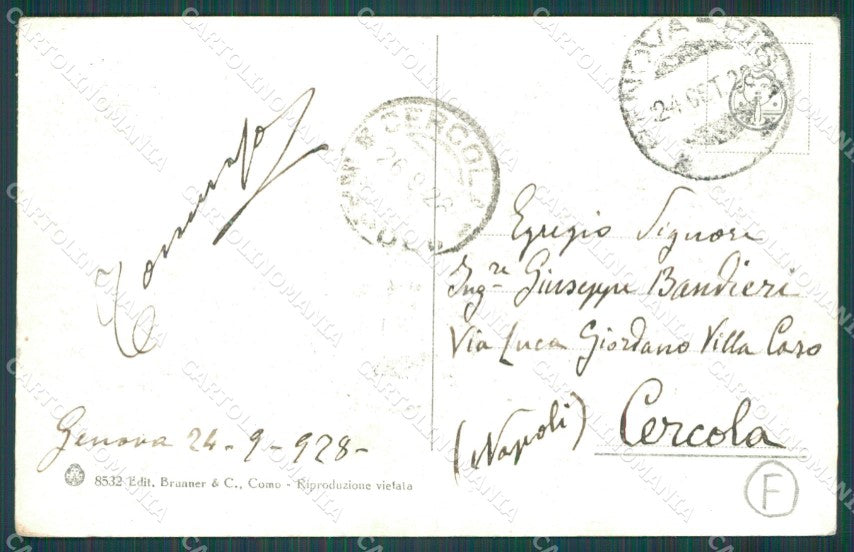 Genova 24-9-928-
8532 Edit. Brunner & C., Como - Riproduzione vietata
CERCOLA
26.9.28
GENOVA
24 28
Egregio Signore
Ing.re Giuseppe Bandieri
Via Luca Giordano Villa Caro
(Napoli) Cercola
F
CARTOLINOMANIA